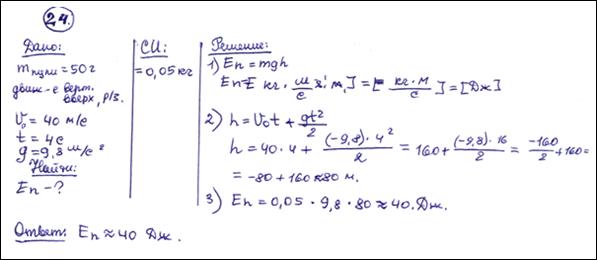 24.
Дано:
m пули = 50 г
движ-е верт. вверх, р/з.
V₀ = 40 м/с
t = 4с
g = 9,8 м/с²
Найти:
Eп - ?
СИ:
= 0,05 кг
Решение:
1) Eп = mgh
Eп = [кг · м/с² · м] = [кг · м/с] = [Дж]
2) h = V₀t + gt²/2
h = 40 · 4 + (-9,8) · 4²/2 = 160 + (-9,8) · 16/2 = -160/2 + 160 =
= -80 + 160 ≈ 80 м.
3) Eп = 0,05 · 9,8 · 80 ≈ 40. Дж.
Ответ: Eп ≈ 40 Дж.